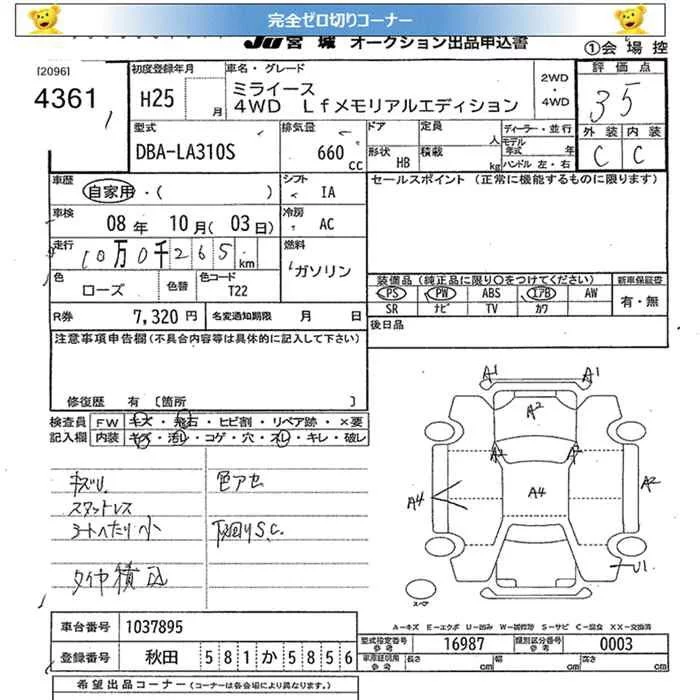 完全ゼロ切りコーナー
JU 宮城 オークション出品申込書 ①会場控
[2096] 初度登録年月 車名・グレード 2WD・4WD 評価点
4361 H25 月 ミライース
4WD Lfメモリアルエディション 35
型式 排気量 ドア 定員 人 ディーラー・並行 外装 内装
DBA-LA310S 660 cc 形状 HB 積載 kg モデル年式 年 ハンドル 左・右 C C
車歴 自家用・( ) シフト IA セールスポイント (正常に機能するものに限ります)
車検 08年 10月(03日) 冷房 AC
走行 10万0千265km 燃料 ガソリン
色 ローズ 色替 色コード T22 装備品(純正品に限り○をつけてください) 新車保証書
PS PW ABS エアB AW 有・無
SR ナビ TV カワ
R券 7,320円 名変通知期限 月 日 後日品
注意事項申告欄(不具合内容等は具体的に記入して下さい)
修復歴 有 [箇所
検査員 FW キズ・飛石・ヒビ割・リペア跡・×要
記入欄 内装 キズ・汚レ・コゲ・穴・スレ・キレ・破レ
キズU. 色アセ
スタットレス
シートへたり小 下廻りS.C.
タイヤ積込
A1 A1
A2
A2 A4 A4 A2
U1
スペア
A-キズ E-エクボ U-凹み W-補修跡 S-サビ C-腐食 XX-交換済
車台番号 1037895
型式指定番号 参考 16987 類別区分番号 参考 0003
登録番号 秋田 581か5856 車庫証明用 参考 長さ cm 幅 cm 高さ cm
希望出品コーナー (コーナーは各会場により異なります。)